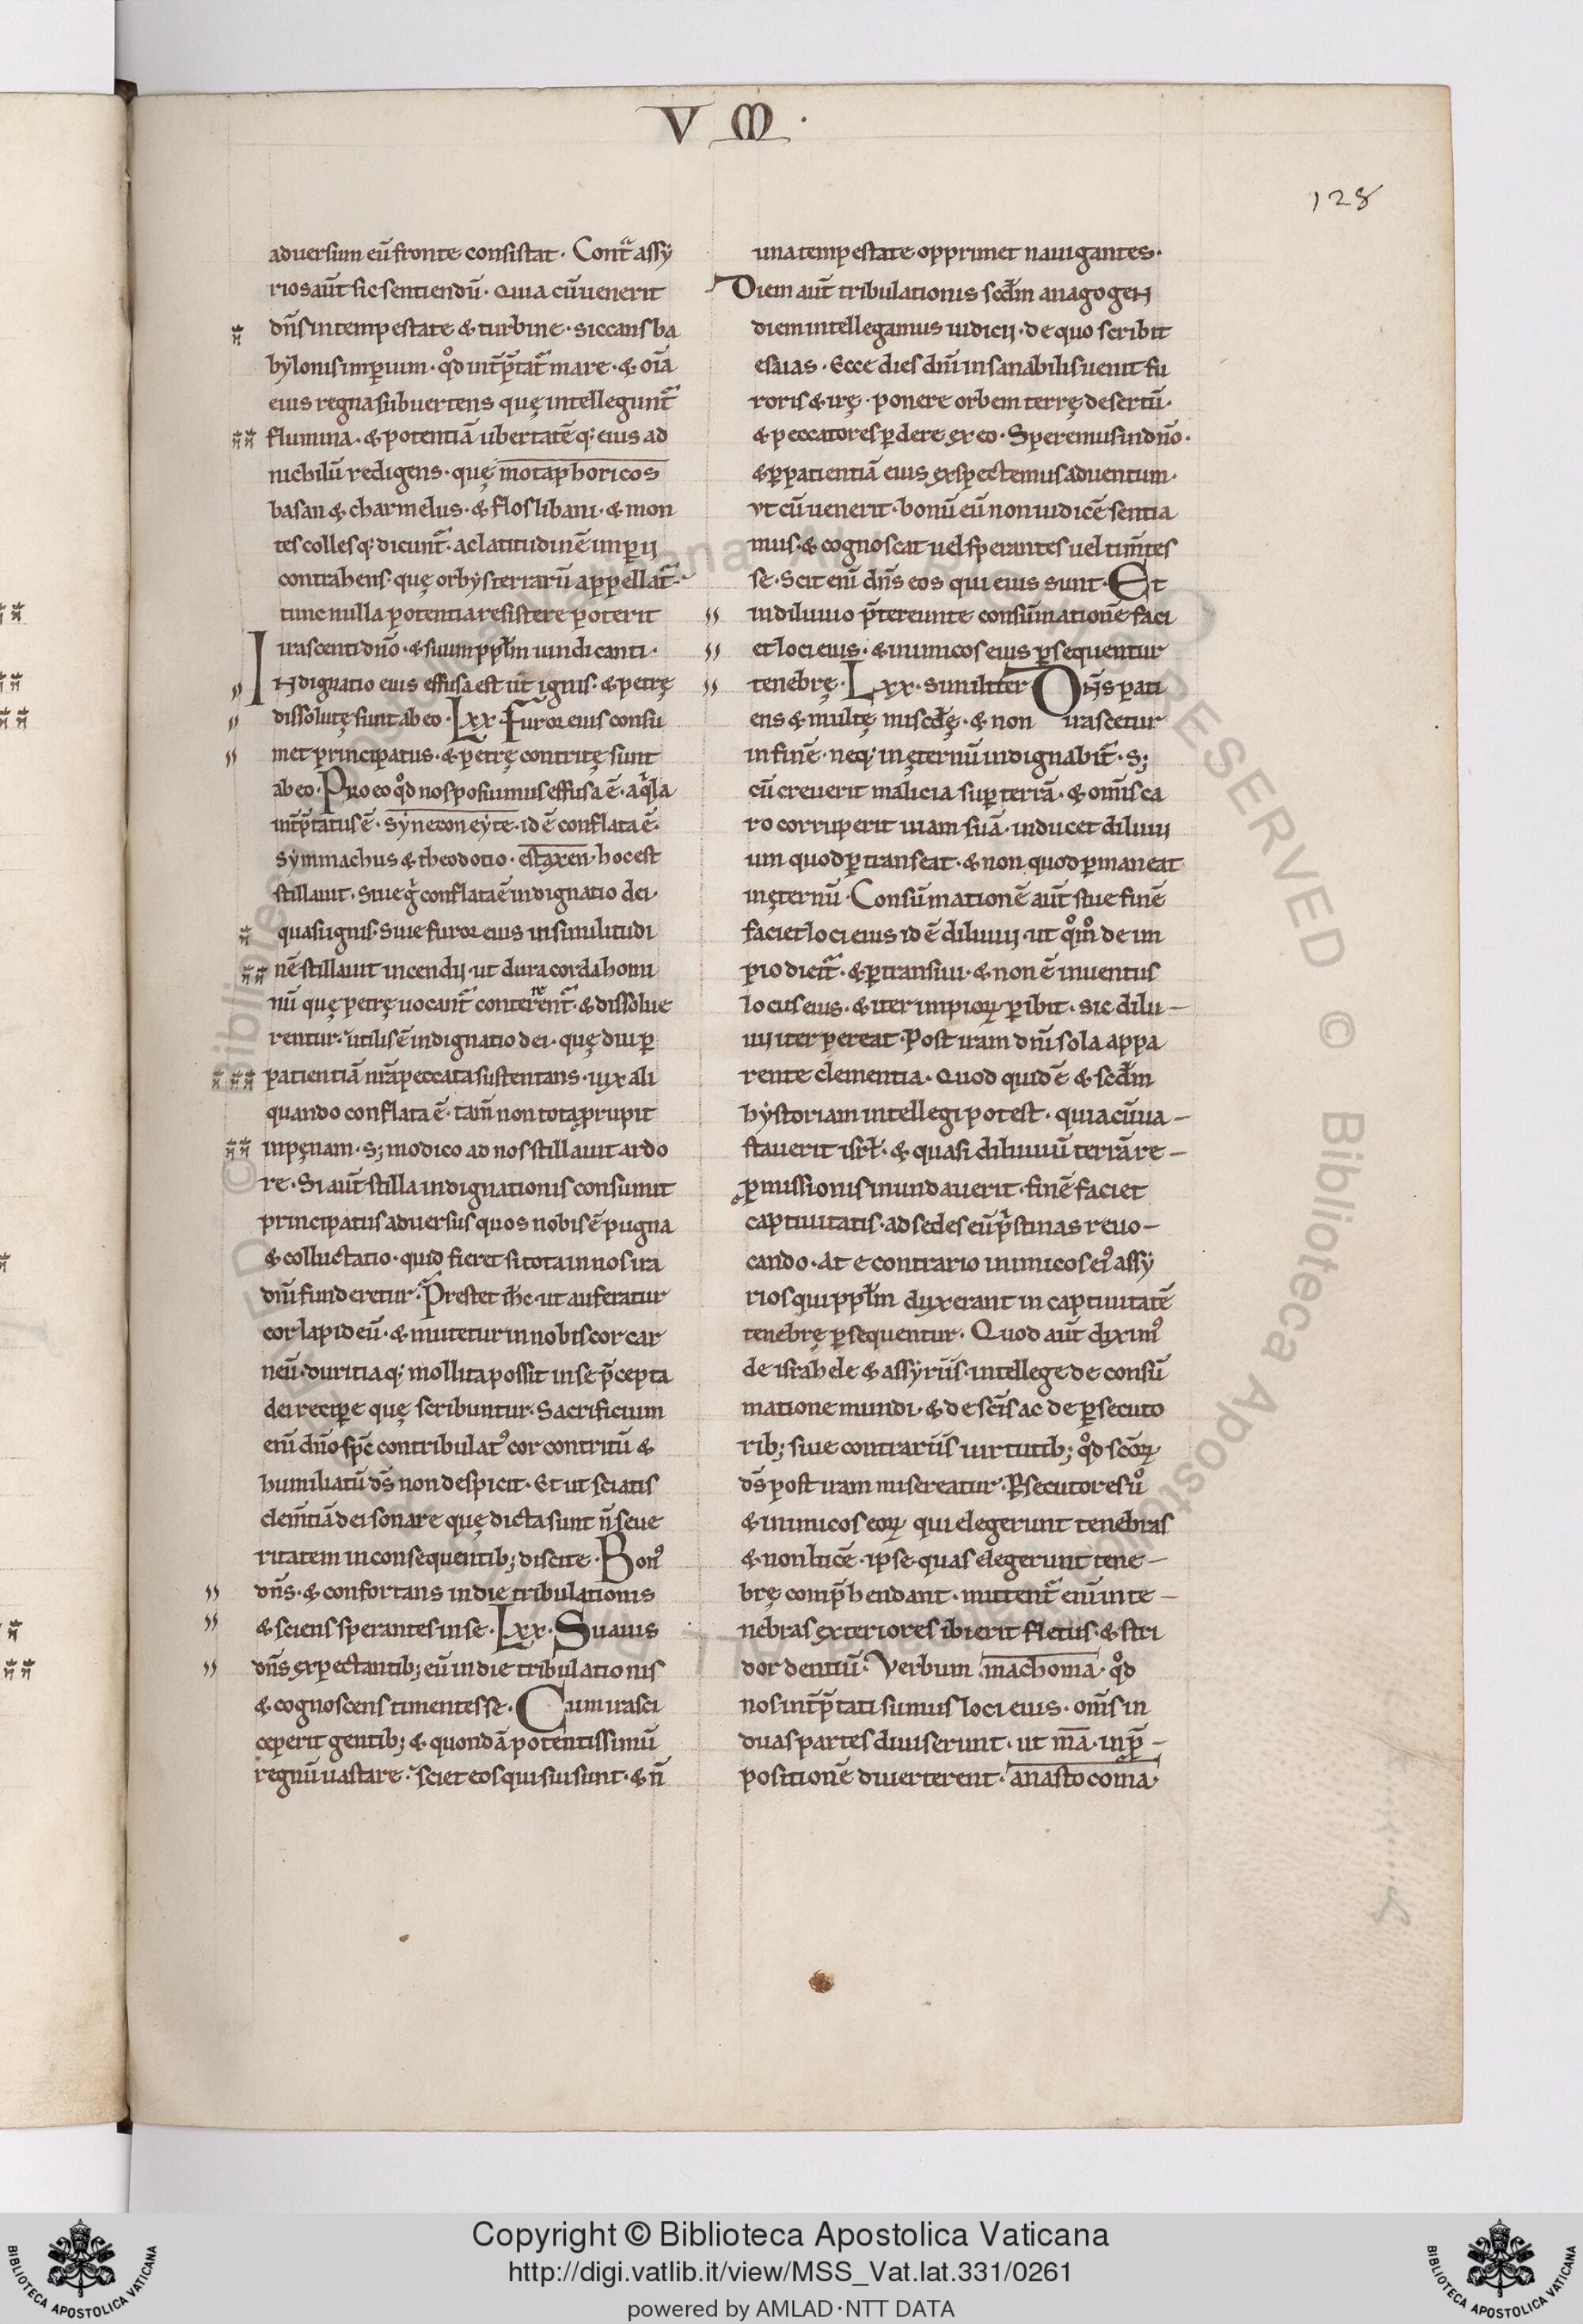 V M ·
128
aduersum eū fronte consistat · Contᵃ assy
rios aūt sic sentiendū · Quia cū uenerit
dn̄s in tempestate & turbine · siccans ba
bẏlonis imꝑium · qͦd int̄p̄tat᷑ mare · & oīa
eius regna subuertens quę intellegunt᷑
flumina · & potentiā ubertatē q; eius ad
nichilū redigens · quę motaphoricos
basan & charmelus · & flos libani · & mon
tes colles q; dicunt᷑ · ac latitudinē imꝑii
contrahens · quę orbẏs terrarū appellat᷑ ·
tunc nulla potentia resistere poterit
Irascenti dn̄o · & suum pp̄lm uindicanti ·
Indignatio eius effusa est ut ignis · & petrę
dissolutę sunt ab eo · Lxx · Furor eius consu
met principatus · & petrę contritę sunt
ab eo · Pro eo qͦd nos posuimus effusa ē · aqⁱla
int̄p̄tatus ē · sẏneconeẏte · id ē conflata ē ·
Sẏmmachus & theodotio · estaxen · hoc est
stillauit · Siue gͥ conflata ē indignatio dei ·
quasi ignis · Siue furor eius in similitudi
nē stillauit incendij · ut dura corda homi
nū quę petrę uocant᷑ contererent᷑ · & dissolue
rentur · utilis ē indignatio dei · quę diu ꝑ
patientiā nr̄a peccata sustentans · uix ali
quando conflata ē · tam̄ non tota prupit
in pęnam · s; modico ad nos stillauit ardo
re · Si aūt stilla indignationis consumit
principatus aduersus quos nobis ē pugna
& colluctatio · quid fieret si tota in nos ira
dn̄i funderetur · Prestet ih̄c · ut auferatur
cor lapideū · & mutetur in nobis cor car
neū · duritia q; mollita possit in se p̄cepta
dei reciꝑe quę scribuntur · Sacrificium
eni᷑ dn̄o sp̄c contribulatꝰ cor contritū &
humiliatū dś non despicit · Et ut sciatis
clem̄tiā dei sonare quę dicta sunt n̄ seue
ritatem in consequentib; discite · Bonꝰ
dn̄s · & confortans in die tribulationis
& sciens sperantes in se · Lxx · Suauis
dn̄s expectantib; eū in die tribulationis
& cognoscens timentes se · Cum irasci
ceperit gentib; & quondā potentissimū
regnū uastare · sciet eos qui sui sunt · & n̄
una tempestate opprimet nauigantes ·
Diem aūt tribulationis scd̄m anagogen
diem intellegamus iudicij · de quo scribit
esaias · Ecce dies dn̄i insanabilis uenit fu
roris & irę · ponere orbem terrę desertū ·
& peccatores ꝑdere ex eo · Speremus in dn̄o ·
& ꝑ patientiā eius exspectemus aduentum ·
vt cū uenerit · bonū eū non iudicē sentia
mus · & cognoscat uel sperantes uel tim̄tes
se · Scit eni᷑ dn̄s eos qui eius sunt · Et
in diluuio p̄tereunte consūmationē faci
et loci eius · & inimicos eius ꝑsequentur
tenebrę · Lxx · similiter Dn̄s pati
ens & multę miscd̄ę · & non irascetur
in finē · neq; in ęternū indignabit᷑ · S;
cū creuerit malicia suꝑ terrā · & omīs ca
ro corruperit uiam suā · inducet diluuij
um quod ꝑtranseat · & non quod ꝑmaneat
in ęternū · Consūmationē aūt siue finē
faciet loci eius id ē diluuij · ut qͦmͦ de im
pio dicit᷑ · & ꝑtransiui · & non ē inuentus
locus eius · & iter impioꝝ ꝑibit · sic dilu-
uij iter pereat · Post iram dn̄i sola appa
rente clementia · Quod quidē & scd̄m
hẏstoriam intellegi potest · quia cū ua-
stauerit isrł · & quasi diluuiū terrā re-
ꝓmissionis inundauerit · finē faciet
captiuitatis · ad sedes eū pⁱstinas reuo-
cando · At e contrario inimicos eiꝰ assẏ
rios qui pp̄lm duxerant in captiuitatē
tenebrę ꝑsequentur · Quod aūt diximꝰ
de israhele & assẏriis · intellege de consū
matione mundi · & de scīs ac de ꝑsecuto
rib; siue contrariis uirtutib; qͦd scōꝝ
dś post iram misereatur · Ꝑsecutores uͦ
& inimicos eoꝝ qui elegerunt tenebras
& non lucē · ipse quas elegerunt tene-
brę comp̄hendant · mittent᷑ eni᷑ in te-
nebras exteriores ibi erit fletus · & stri
dor dentiū · Verbum machoma · qͦd
nos int̄p̄tati sumus loci eius · om̄s in
duas partes diuiserunt · ut ma · in p̄-
positionē diuerterent · anastocoma ·
Copyright © Biblioteca Apostolica Vaticana
http://digi.vatlib.it/view/MSS_Vat.lat.331/0261
powered by AMLAD·NTT DATA